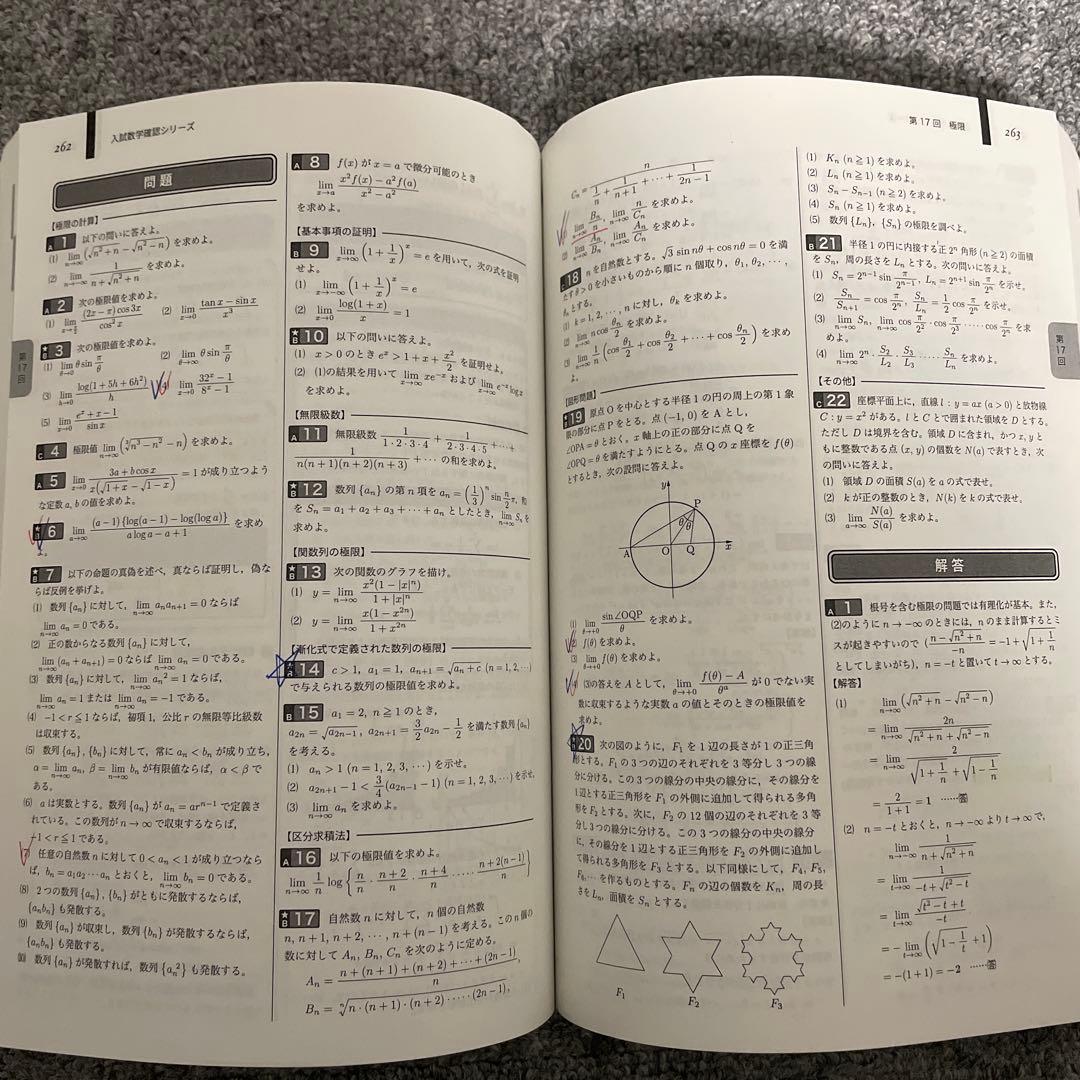 262
入試数学確認シリーズ
問題
【極限の計算】
A 1 以下の問いに答えよ。
(1) lim_{n→∞}(√(n²+n)−√(n²−n)) を求めよ。
(2) lim_{n→−∞} 1/(n+√(n²+n)) を求めよ。
A 2 次の極限値を求めよ。
(1) lim_{x→π/2} (2x−π)cos3x/cos²x (2) lim_{x→0} (tan x−sin x)/x³
★B 3 次の極限値を求めよ。
(1) lim_{θ→0} θ sin π/θ (2) lim_{θ→∞} θ sin π/θ
(3) lim_{h→0} log(1+5h+6h²)/h (4) lim_{x→0} (3^{2x}−1)/(8^x−1)
(5) lim_{x→0} (e^x+x−1)/sin x
C 4 極限値 lim_{n→∞}(∛(n³−n²)−n) を求めよ。
A 5 lim_{x→0} (3a+b cos x)/(x(√(1+x)−√(1−x))) = 1 が成り立つよう
な定数 a, b の値を求めよ。
★B 6 lim_{a→∞} (a−1){log(a−1)−log(log a)}/(a log a−a+1) を求め
よ。
★B 7 以下の命題の真偽を述べ，真ならば証明し，偽な
らば反例を挙げよ。
(1) 数列 {a_n} に対して，lim_{n→∞} a_n a_{n+1}=0 ならば
lim_{n→∞} a_n=0 である。
(2) 正の数からなる数列 {a_n} に対して，
lim_{n→∞}(a_n+a_{n+1})=0 ならば lim_{n→∞} a_n=0 である。
(3) 数列 {a_n} に対して，lim_{n→∞} a_n²=1 ならば，
lim_{n→∞} a_n=1 または lim_{n→∞} a_n=−1 である。
(4) −1<r≦1 ならば，初項 1，公比 r の無限等比級数
は収束する。
(5) 数列 {a_n}, {b_n} に対して，常に a_n<b_n が成り立ち，
α=lim_{n→∞} a_n, β=lim_{n→∞} b_n が有限値ならば，α<β で
ある。
(6) a は実数とする。数列 {a_n} が a_n=ar^{n−1} で定義さ
れている。この数列が n→∞ で収束するならば，
−1<r≦1 である。
任意の自然数 n に対して 0<a_n<1 が成り立つなら
ば，b_n=a₁a₂⋯a_n とおくと，lim_{n→∞} b_n=0 である。
(8) 2つの数列 {a_n}, {b_n} がともに発散するならば，
{a_n b_n} も発散する。
(9) 数列 {a_n} が収束し，数列 {b_n} が発散するならば，
{a_n b_n} も発散する。
(10) 数列 {a_n} が発散すれば，数列 {a_n²} も発散する。
A 8 f(x) が x=a で微分可能のとき
lim_{x→a} (x²f(x)−a²f(a))/(x²−a²)
を求めよ。
【基本事項の証明】
★B 9 lim_{x→∞}(1+1/x)^x=e を用いて，次の式を証明
せよ。
(1) lim_{x→−∞}(1+1/x)^x=e
(2) lim_{x→0} log(1+x)/x=1
★B 10 以下の問いに答えよ。
(1) x>0 のとき e^x>1+x+x²/2 を証明せよ。
(2) (1)の結果を用いて lim_{x→∞} xe^{−x} および lim_{x→+0} x log x
を求めよ。
【無限級数】
A 11 無限級数 1/(1·2·3·4)+1/(2·3·4·5)+⋯+
1/(n(n+1)(n+2)(n+3))+⋯ の和を求めよ。
★B 12 数列 {a_n} の第 n 項を a_n=(1/3)^n sin n/2 π，和
を S_n=a₁+a₂+a₃+⋯+a_n としたとき，lim_{n→∞} S_n を
求めよ。
【関数列の極限】
★B 13 次の関数のグラフを描け。
(1) y=lim_{n→∞} x²(1−|x|^n)/(1+|x|^n)
(2) y=lim_{n→∞} x(1−x^{2n})/(1+x^{2n})
【漸化式で定義された数列の極限】
14 c>1, a₁=1, a_{n+1}=√(a_n+c) (n=1, 2, ⋯)
で与えられる数列の極限値を求めよ。
B 15 a₁=2, n≧1 のとき，
a_{2n}=√a_{2n−1}, a_{2n+1}=3/2 a_{2n}−1/2 を満たす数列 {a_n}
を考える。
(1) a_n>1 (n=1, 2, 3, ⋯) を示せ。
(2) a_{2n+1}−1<3/4(a_{2n−1}−1) (n=1, 2, 3, ⋯) を示せ。
(3) lim_{n→∞} a_n を求めよ。
【区分求積法】
A 16 以下の極限値を求めよ。
lim_{n→∞} 1/n log{n/n · (n+2)/n · (n+4)/n ⋯⋯ (n+2(n−1))/n}
★B 17 自然数 n に対して，n 個の自然数
n, n+1, n+2, ⋯, n+(n−1) を考える。この n 個の
数に対して A_n, B_n, C_n を次のように定める。
A_n=(n+(n+1)+(n+2)+⋯+(2n−1))/n,
B_n=ⁿ√(n·(n+1)·(n+2)·⋯⋯·(2n−1)),
第17回
第 17 回 極限
263
C_n=n/(1/n+1/(n+1)+⋯+1/(2n−1))
lim_{n→∞} B_n/n, lim_{n→∞} n/C_n を求めよ。
lim_{n→∞} A_n/B_n, lim_{n→∞} A_n/C_n を求めよ。
18 n を自然数とする。√3 sin nθ+cos nθ=0 を満
たす θ>0 を小さいものから順に n 個取り，θ₁, θ₂, ⋯,
θ_n とする。
(1) k=1, 2, ⋯, n に対し，θ_k を求めよ。
(2) lim_{n→∞} n cos θ_n/2 を求めよ。
(3) lim_{n→∞} 1/n(cos θ₁/2+cos θ₂/2+⋯+cos θ_n/2) を求め
よ。
【図形問題】
19 原点 O を中心とする半径 1 の円の周上の第 1 象
限の部分に点 P をとる。点 (−1, 0) を A とし，
∠OPA=θ とおく。x 軸上の正の部分に点 Q を
∠OPQ=θ を満たすようにとる。点 Q の x 座標を f(θ)
とするとき，次の設問に答えよ。
y
P
θ
θ
A
O
Q
x
(1) lim_{θ→+0} sin∠OQP/θ を求めよ。
(2) f(θ) を求めよ。
(3) lim_{θ→+0} f(θ) を求めよ。
(4) (3)の答えを A として，lim_{θ→+0} (f(θ)−A)/θ^a が 0 でない実
数に収束するような実数 a の値とそのときの極限値を
求めよ。
20 次の図のように，F₁ を 1 辺の長さが 1 の正三角
形とする。F₁ の 3 つの辺のそれぞれを 3 等分し 3 つの線
分に分ける。この 3 つの線分の中央の線分に，その線分を
1 辺とする正三角形を F₁ の外側に追加して得られる多角
形を F₂ とする。次に，F₂ の 12 個の辺のそれぞれを 3 等
分し 3 つの線分に分ける。この 3 つの線分の中央の線分
に，その線分を 1 辺とする正三角形を F₂ の外側に追加し
て得られる多角形を F₃ とする。以下同様にして，F₄, F₅,
F₆, ⋯ を作るものとする。F_n の辺の個数を K_n，周の長
さを L_n，面積を S_n とする。
F₁
F₂
F₃
(1) K_n (n≧1) を求めよ。
(2) L_n (n≧1) を求めよ。
(3) S_n−S_{n−1} (n≧2) を求めよ。
(4) S_n (n≧1) を求めよ。
(5) 数列 {L_n}, {S_n} の極限を調べよ。
B 21 半径 1 の円に内接する正 2^n 角形 (n≧2) の面積
を S_n，周の長さを L_n とする。次の問いに答えよ。
(1) S_n=2^{n−1} sin π/2^{n−1}, L_n=2^{n+1} sin π/2^n を示せ。
(2) S_n/S_{n+1}=cos π/2^n, S_n/L_n=1/2 cos π/2^n を示せ。
(3) lim_{n→∞} S_n, lim_{n→∞} cos π/2²·cos π/2³·⋯⋯·cos π/2^n を求
めよ。
(4) lim_{n→∞} 2^n·S₂/L₂·S₃/L₃·⋯⋯·S_n/L_n を求めよ。
【その他】
C 22 座標平面上に，直線 l : y=ax (a>0) と放物線
C : y=x² がある。l と C とで囲まれた領域を D とする。
ただし D は境界を含む。領域 D に含まれ，かつ x, y と
もに整数である点 (x, y) の個数を N(a) で表すとき，次
の問いに答えよ。
(1) 領域 D の面積 S(a) を a の式で表せ。
(2) k が正の整数のとき，N(k) を k の式で表せ。
(3) lim_{a→∞} N(a)/S(a) を求めよ。
解答
A 1 根号を含む極限の問題では有理化が基本。また，
(2)のように n→−∞ のときには，n のまま計算するとミ
スが起きやすいので ((n−√(n²+n))/−n=−1+√(1+1/n)
としてしまいがち)，n=−t と置いて t→∞ とする。
【解答】
(1) lim_{n→∞}(√(n²+n)−√(n²−n))
=lim_{n→∞} 2n/(√(n²+n)+√(n²−n))
=lim_{n→∞} 2/(√(1+1/n)+√(1−1/n))
=2/(1+1)=1 ……答
(2) n=−t とおくと，n→−∞ より t→∞ で，
lim_{n→−∞} 1/(n+√(n²+n))
=lim_{t→∞} 1/(−t+√(t²−t))
=lim_{t→∞} (√(t²−t)+t)/−t
=−lim_{t→∞}(√(1−1/t)+1)
=−(1+1)=−2 ……答
第17回